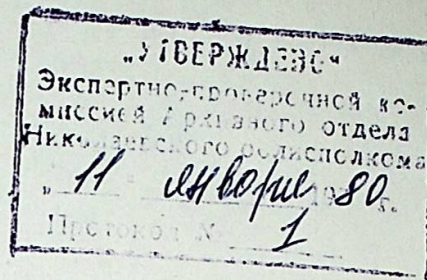 „УТВЕРЖДЕНО“
Экспертно-проверочной ко-
миссией Архивного отдела
Николаевского облисполкома
„ 11 “ января 1980 г.
Протокол № 1